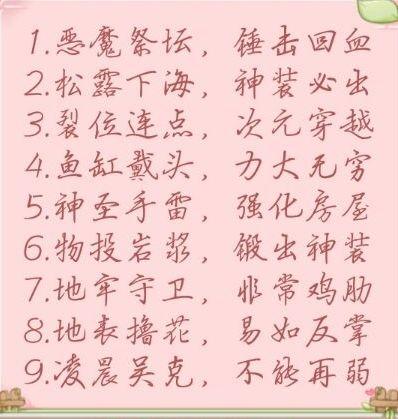 1.恶魔祭坛，锤击回血
2.松露下海，神装必出
3.裂位连点，次元穿越
4.鱼缸戴头，力大无穷
5.神圣手雷，强化房屋
6.物投岩浆，锻出神装
7.地牢守卫，非常鸡肋
8.地表撸花，易如反掌
9.凌晨吴克，不能再弱